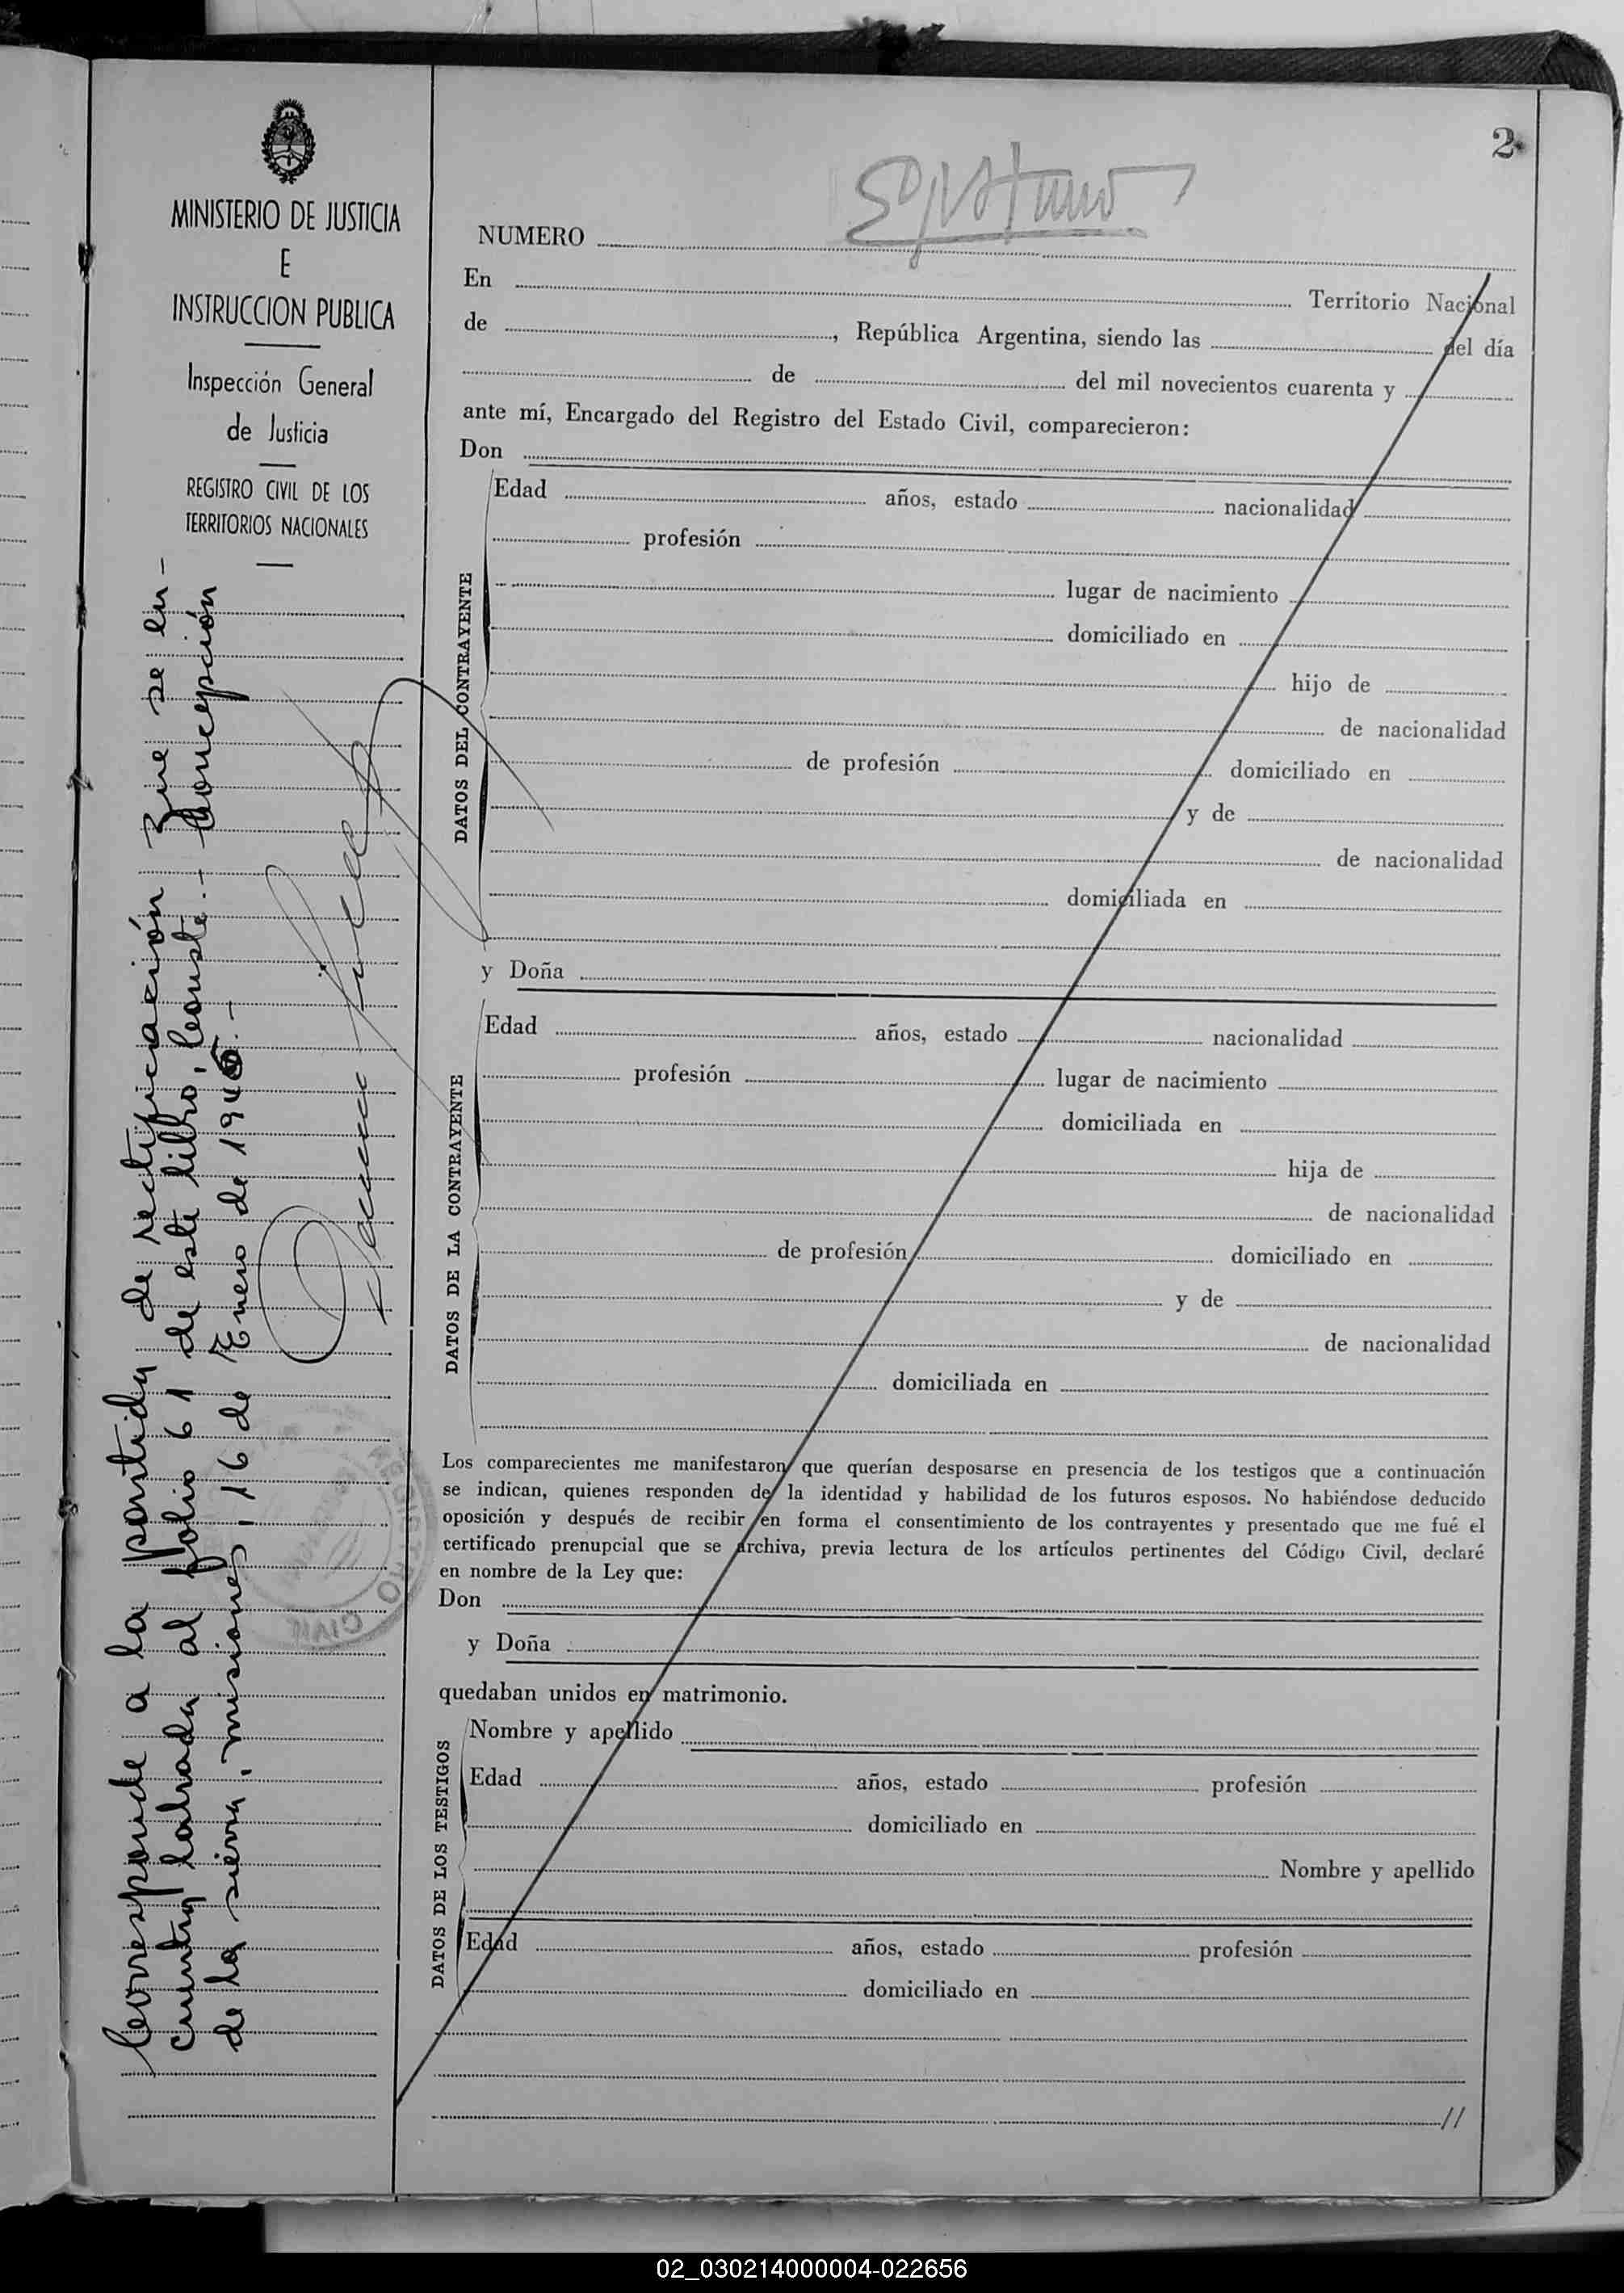 2
MINISTERIO DE JUSTICIA
E
INSTRUCCION PUBLICA
Inspección General
de Justicia
REGISTRO CIVIL DE LOS
TERRITORIOS NACIONALES
Corresponde a la partida de rectificación Que se en-
cuentra labrada al folio 61 de este libro, Conste.- Concepción
de la sierra, misiones, 16 de Enero de 1946.-
REGISTRO CIVIL
NUMERO
En Territorio Nacional
de , República Argentina, siendo las del día
de del mil novecientos cuarenta y
ante mí, Encargado del Registro del Estado Civil, comparecieron:
Don
DATOS DEL CONTRAYENTE
Edad años, estado nacionalidad
profesión
lugar de nacimiento
domiciliado en
hijo de
de nacionalidad
de profesión domiciliado en
y de
de nacionalidad
domiciliada en
y Doña
DATOS DE LA CONTRAYENTE
Edad años, estado nacionalidad
profesión lugar de nacimiento
domiciliada en
hija de
de nacionalidad
de profesión domiciliado en
y de
de nacionalidad
domiciliada en
Los comparecientes me manifestaron que querían desposarse en presencia de los testigos que a continuación
se indican, quienes responden de la identidad y habilidad de los futuros esposos. No habiéndose deducido
oposición y después de recibir en forma el consentimiento de los contrayentes y presentado que me fué el
certificado prenupcial que se archiva, previa lectura de los artículos pertinentes del Código Civil, declaré
en nombre de la Ley que:
Don
y Doña
quedaban unidos en matrimonio.
DATOS DE LOS TESTIGOS
Nombre y apellido
Edad años, estado profesión
domiciliado en
Nombre y apellido
Edad años, estado profesión
domiciliado en
//
02_030214000004-022656